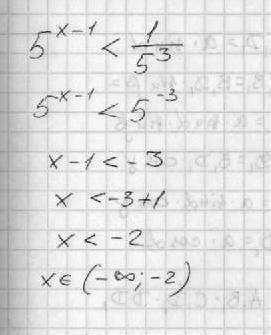 5^{x-1} < \frac{1}{5^3}
5^{x-1} < 5^{-3}
x-1 < -3
x < -3+1
x < -2
x ∈ (-∞; -2)